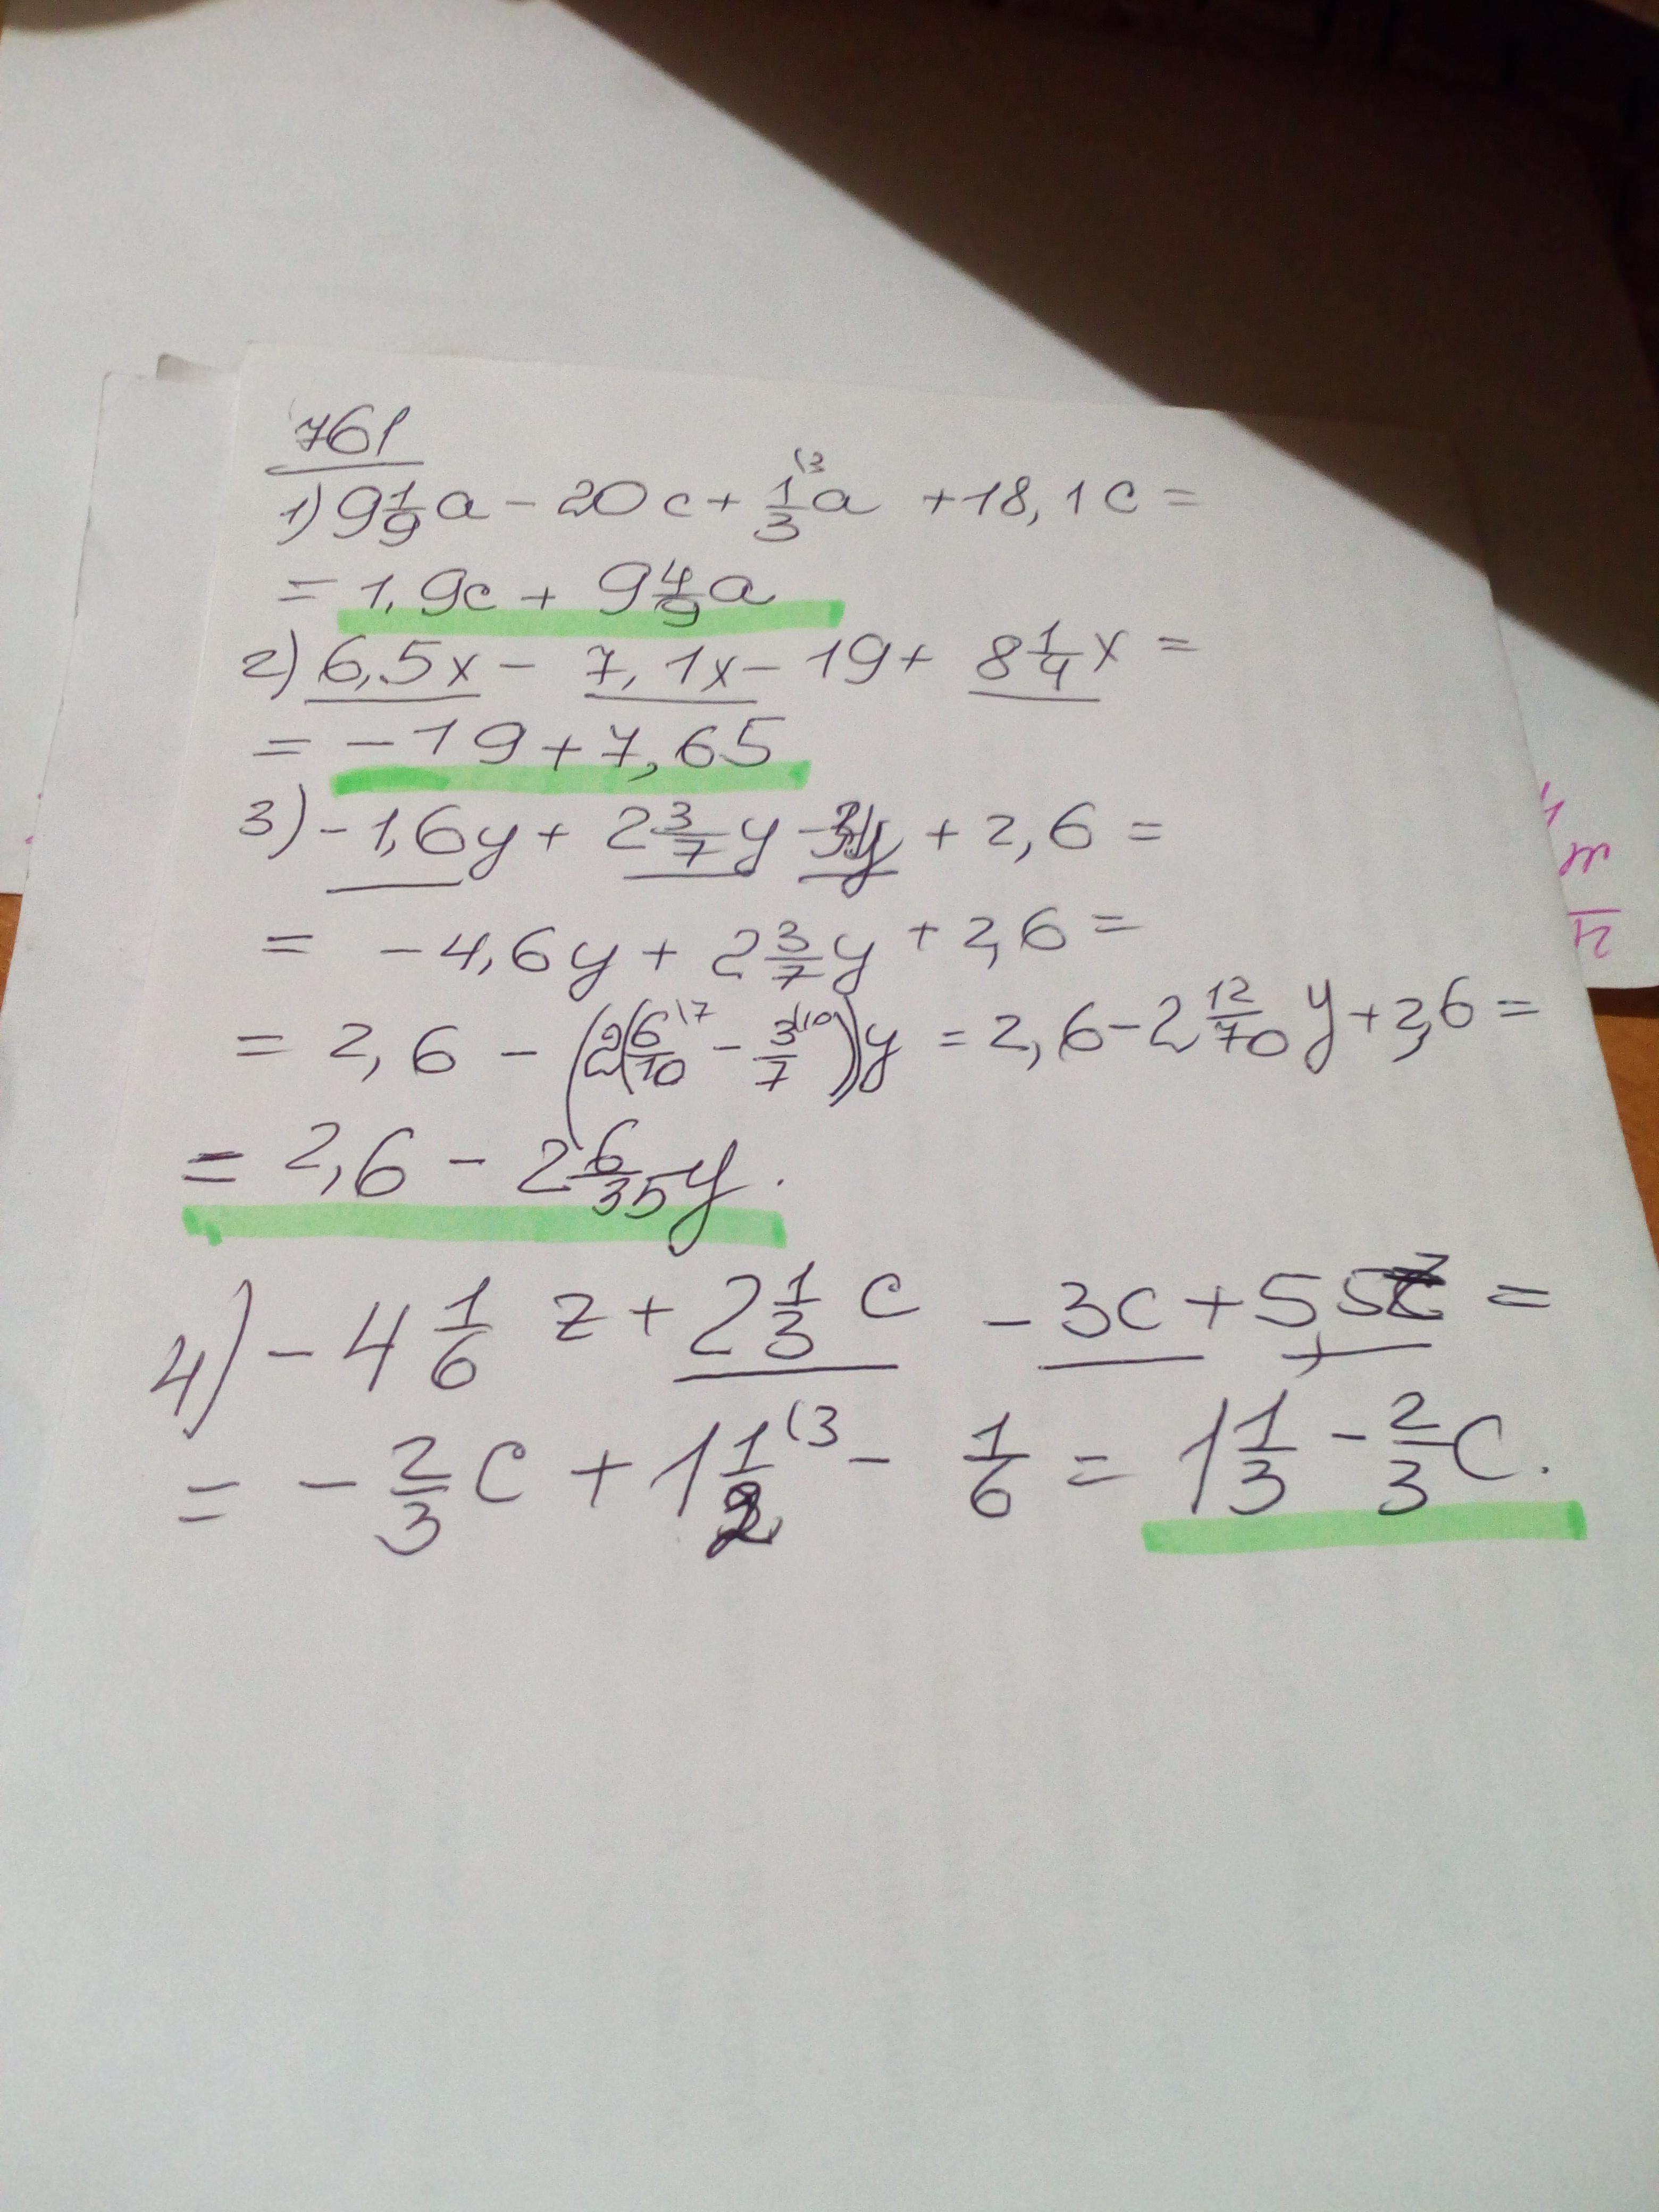 761
1) 9 1/9 a - 20c + 1/3 (3 a + 18,1c =
= 1,9c + 9 4/9 a
2) 6,5x - 7,1x - 19 + 8 1/4 x =
= -19 + 7,65
3) -1,6y + 2 3/7 y - 3y + 2,6 =
= -4,6y + 2 3/7 y + 2,6 =
= 2,6 - (2(6/10 \7 - 3/7 \10))y = 2,6 - 2 12/70 y + 2,6 =
= 2,6 - 2 6/35 y.
4) -4 1/6 z + 2 1/3 c - 3c + 5,5z =
= - 2/3 c + 1 1/2 (3 - 1/6 = 1 1/3 - 2/3 c.